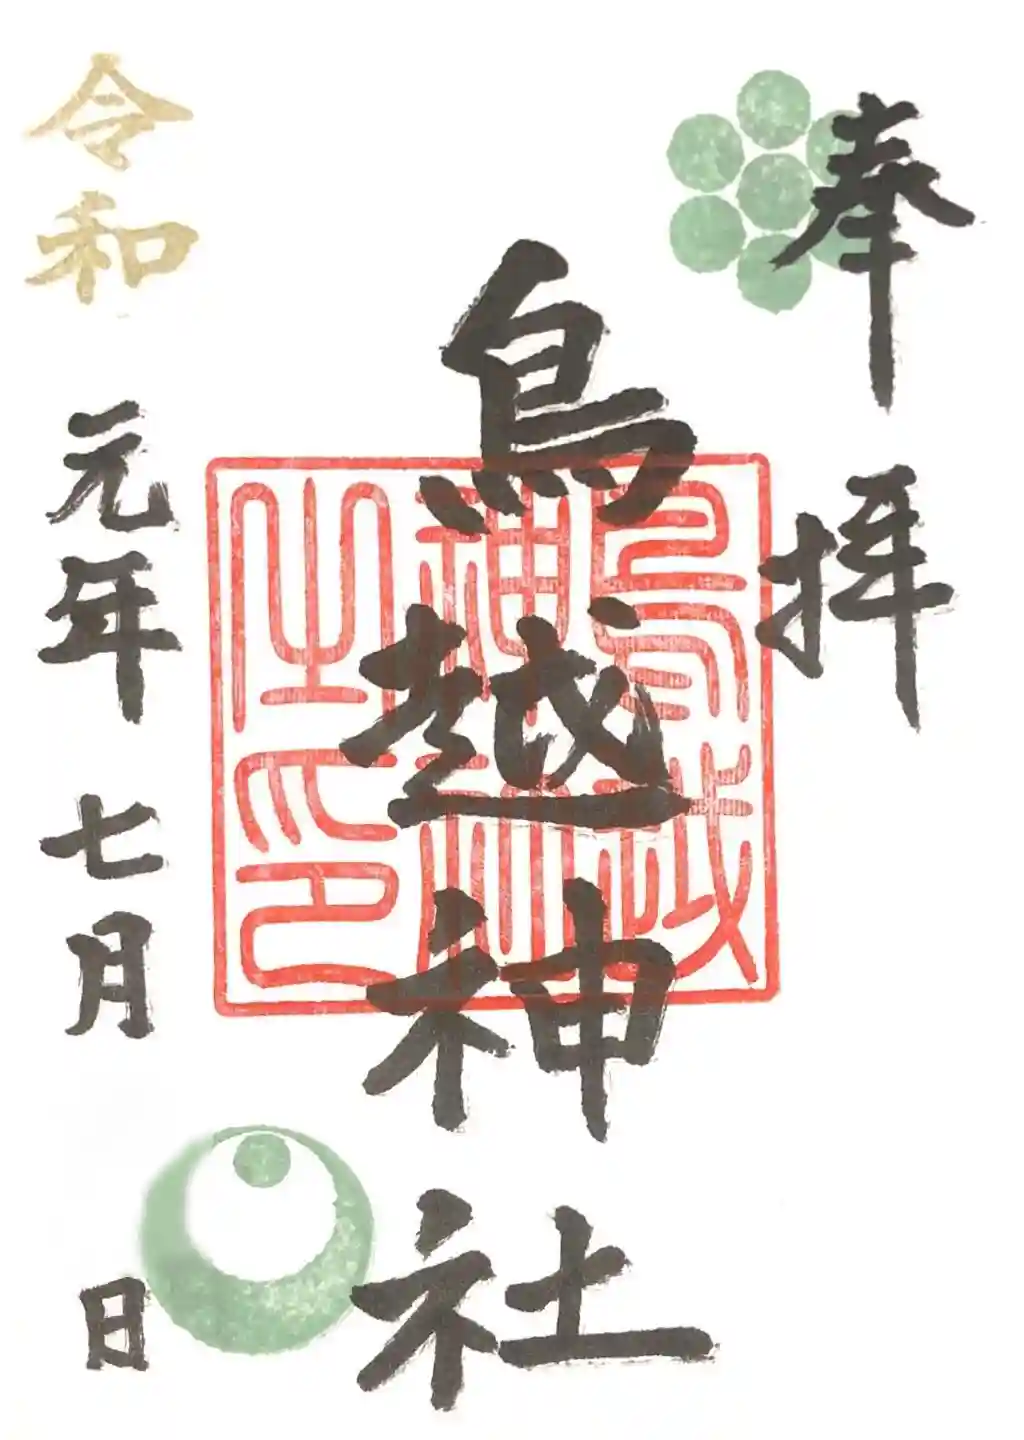 奉拝
鳥越神社
令和元年七月 日
鳥越
神社
之印